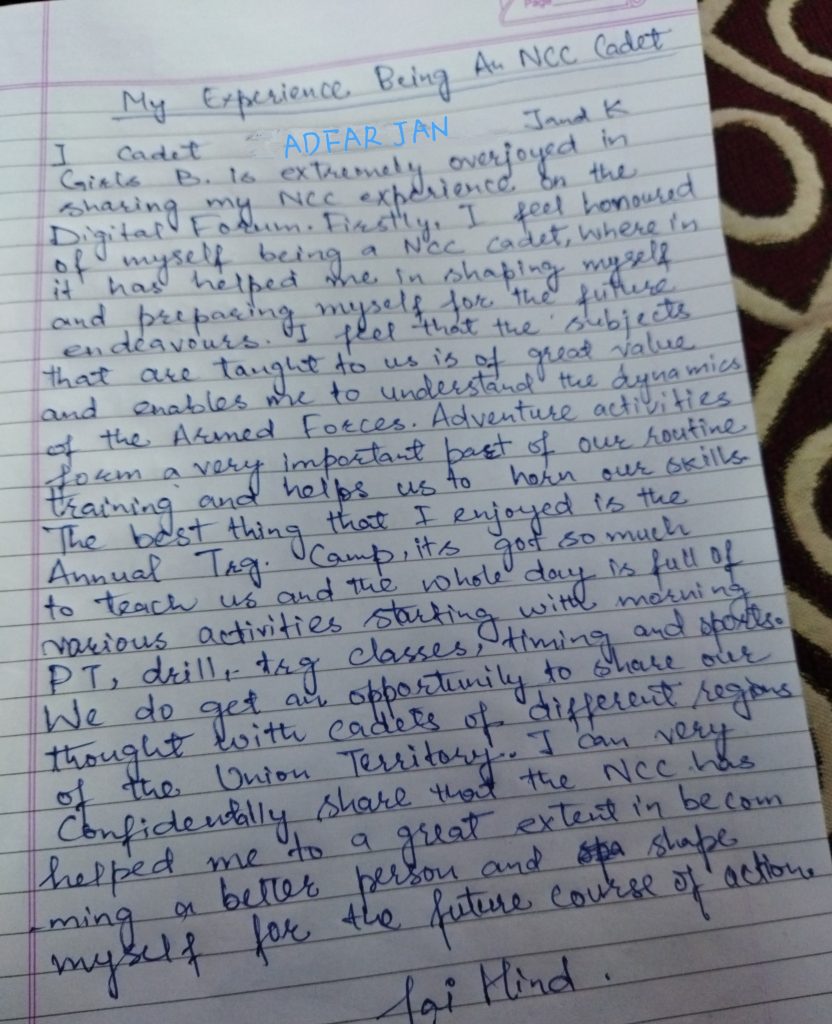 Page
My Experience Being An NCC Cadet
I cadet ADFAR JAN J and K
Girls B. is extremely overjoyed in
sharing my NCC experience on the
Digital Forum. Firstly, I feel honoured
of myself being a NCC cadet, where in
it has helped me in shaping myself
and preparing myself for the future
endeavours. I feel that the subjects
that are taught to us is of great value
and enables me to understand the dynamics
of the Armed Forces. Adventure activities
form a very important part of our routine
training and helps us to horn our skills.
The best thing that I enjoyed is the
Annual Trg. Camp, its got so much
to teach us and the whole day is full of
various activities starting with morning
PT, drill, trg classes, timing and sports.
We do get an opportunity to share our
thought with cadets of different regions
of the Union Territory. I can very
Confidentally share that the NCC has
helped me to a great extent in becom
-ming a better person and shape
myself for the future course of action.
Jai Hind.